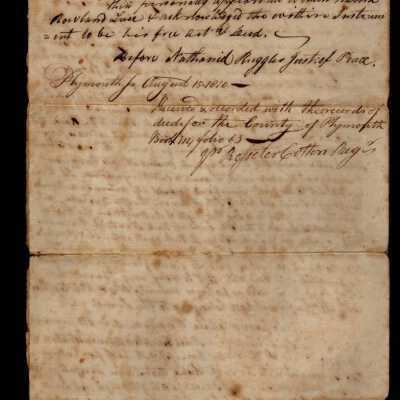 then personally appeared
Rowland Luce & acknowledged the within Instrum
=ent to be his free act & deed.
Before Nathaniel Ruggles Just. of Peace
Plymouth ss August 15. 1810.
Received & recorded with the records of
deeds for the County of Plymouth
Book 114 folio 63
Rossiter Cotton Regr